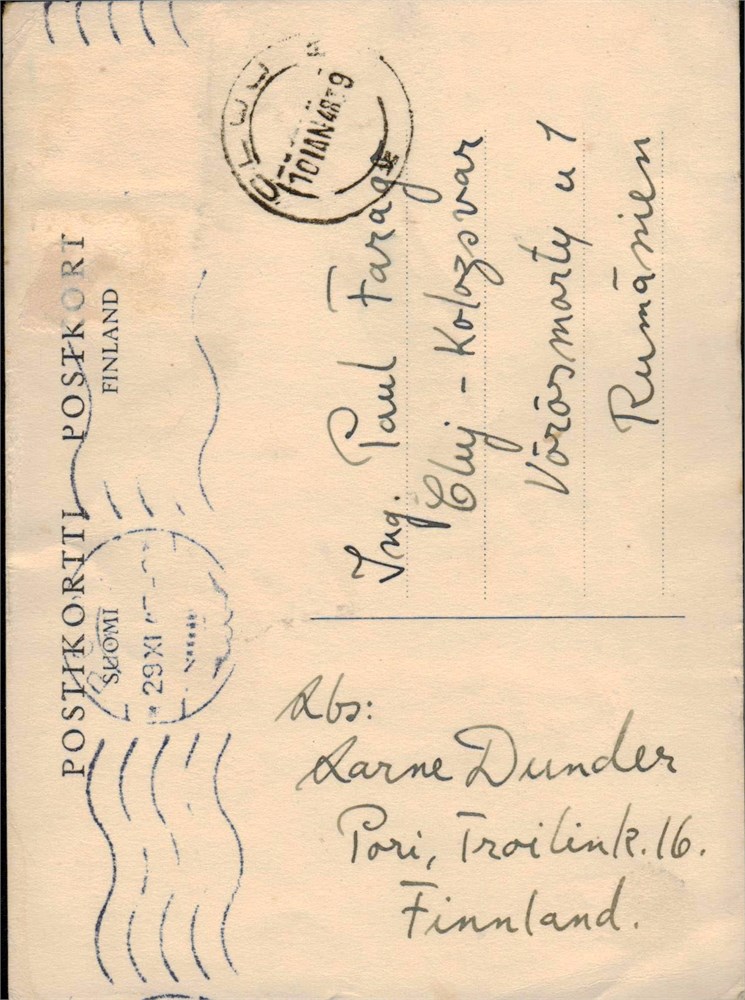 POSTIKORTTI POSTKORT
SUOMI FINLAND
29 XI
10 IAN 48 * 9
Ing. Paul Farago
Cluj - Kolozsvar
Vörösmarty u 1
Rumänien
Abs:
Aarne Dunder
Pori, Troilink. 16.
Finnland.